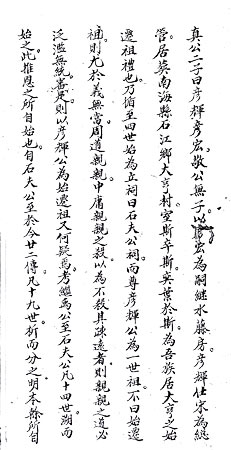 真公二子曰彦輝彦宏敬公無子以彦宏為嗣継水藤房彦輝仕宋為緫
管居英南海縣石江鄉大亨村室斯卒斯奕葉於斯為吾族居大亨之始
遷祖禮也乃猶至四世始為立祠曰石大公祠而尊彦輝公為一世祖不曰始遷
祖則尤於義無當周道親親中庸親親之殺以為不殺其疎遠者則親親之道必
泛濫無統審是則以彦輝公為始遷祖又何疑焉考継禹公至石大公凡十四世溯而
始之此推恩之所自始也自石大公至於今廿二傳凡十九世析而分之明本縣所自